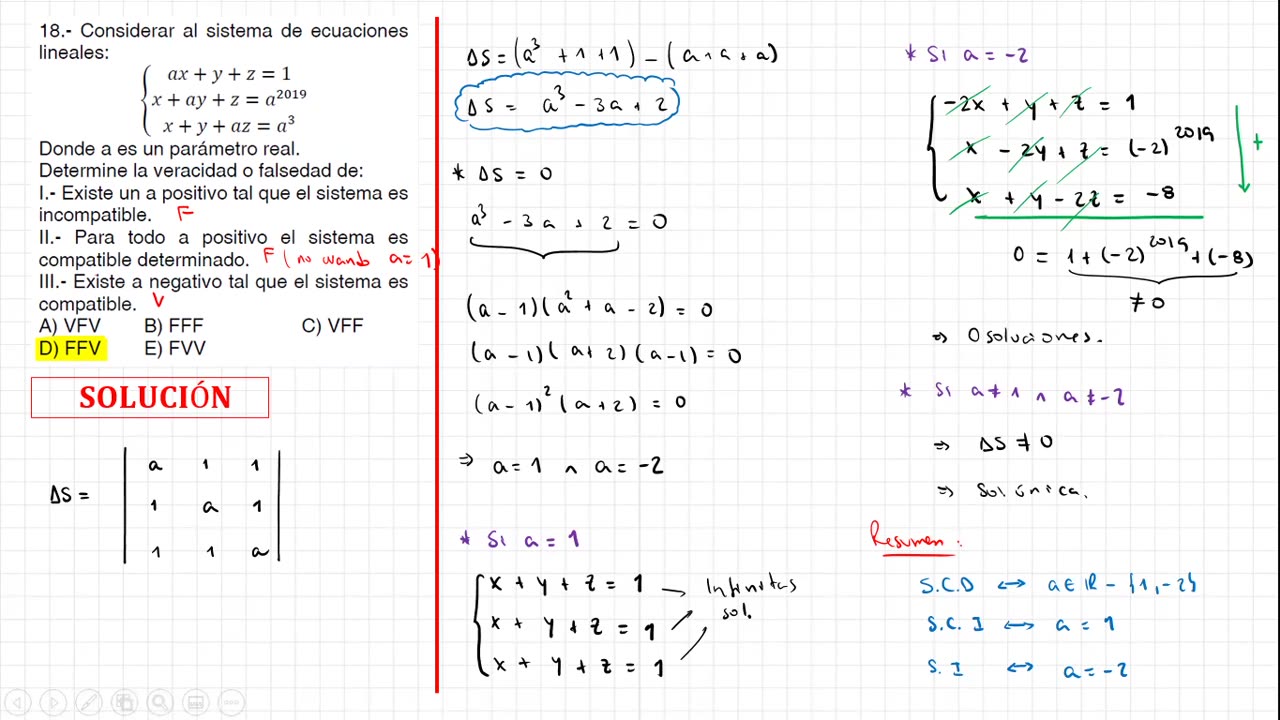 18.- Considerar al sistema de ecuaciones
lineales:
ax + y + z = 1
x + ay + z = a^2019
x + y + az = a^3
Donde a es un parámetro real.
Determine la veracidad o falsedad de:
I.- Existe un a positivo tal que el sistema es
incompatible. F
II.- Para todo a positivo el sistema es
compatible determinado. F (no cuando a=1)
III.- Existe a negativo tal que el sistema es
compatible. V
A) VFV B) FFF C) VFF
D) FFV E) FVV
SOLUCIÓN
ΔS =
a 1 1
1 a 1
1 1 a
ΔS = (a^3 + 1 + 1) - (a + a + a)
ΔS = a^3 - 3a + 2
* ΔS = 0
a^3 - 3a + 2 = 0
(a - 1)(a^2 + a - 2) = 0
(a - 1)(a + 2)(a - 1) = 0
(a - 1)^2 (a + 2) = 0
⇒ a = 1 ∧ a = -2
* Si a = 1
x + y + z = 1 → Infinitas
x + y + z = 1 sol.
x + y + z = 1
* Si a = -2
-2x + y + z = 1
x - 2y + z = (-2)^2019 +
x + y - 2z = -8
0 = 1 + (-2)^2019 + (-8)
≠ 0
⇒ 0 soluciones.
* Si a ≠ 1 ∧ a ≠ -2
⇒ ΔS ≠ 0
⇒ Sol única.
Resumen:
S.C.D ↔ a ∈ ℝ - {1, -2}
S.C.I ↔ a = 1
S.I ↔ a = -2